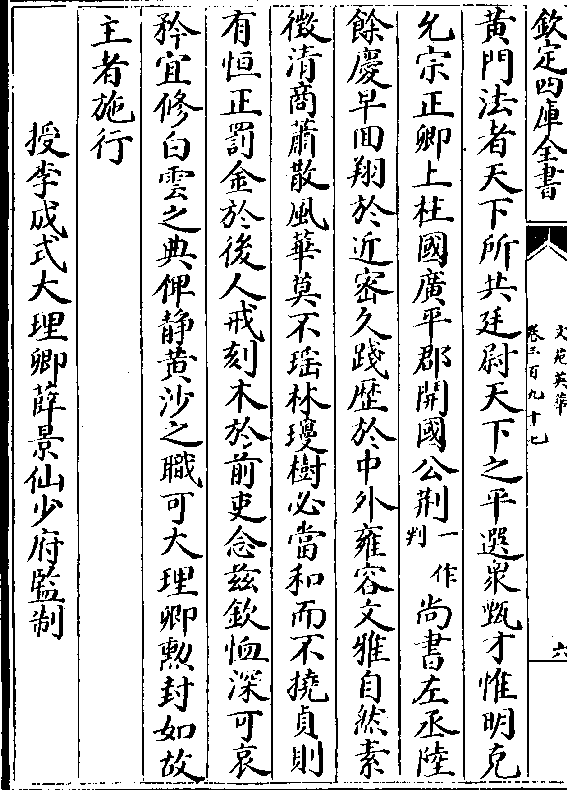 欽定四庫全書
文苑英華
卷三百九十七
六
黄門法者天下所共廷尉天下之平選衆甄才惟明克
允宗正卿上柱國廣平郡開國公荆一作判尚書左丞陸
餘慶早回翔於近密久踐歴於中外雍容文雅自然素
徴清商蕭散風華莫不瑶林瓊樹必當和而不撓貞則
有恒正罰金於後人戒刻木於前吏念兹欽恤深可哀
矜宜修白雲之典俾静黄沙之職可大理卿勲封如故
主者施行
授李成式大理卿薛景仙少府監制